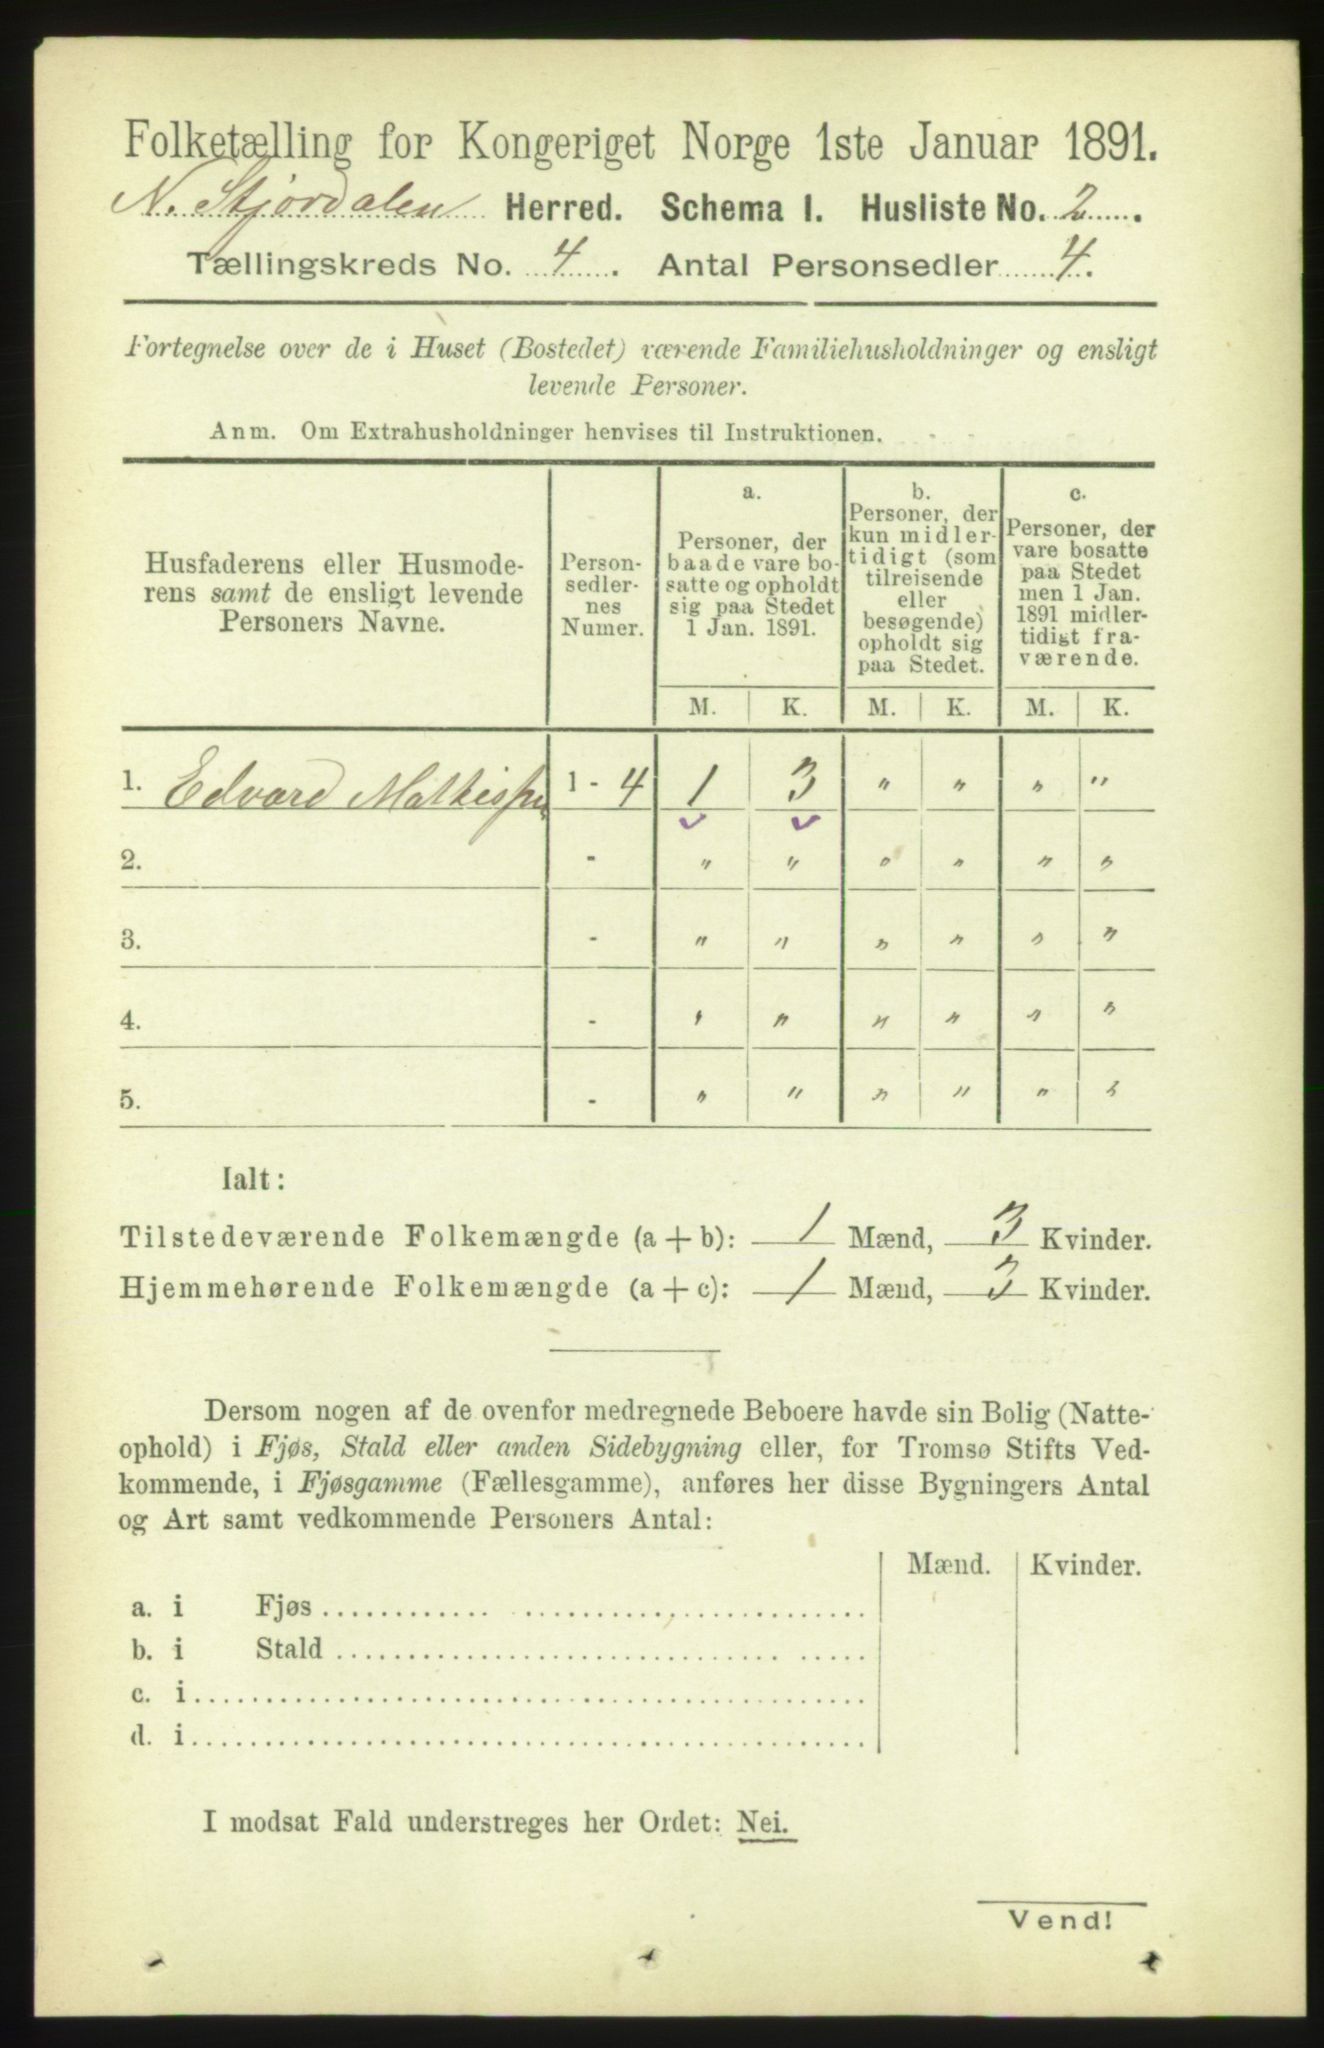 Folketælling for Kongeriget Norge 1ste Januar 1891.
N. Stjørdalen Herred. Schema I. Husliste No. 2.
Tællingskreds No. 4. Antal Personsedler 4.
Fortegnelse over de i Huset (Bostedet) værende Familiehusholdninger og ensligt
levende Personer.
Anm. Om Extrahusholdninger henvises til Instruktionen.
Husfaderens eller Husmode-
rens samt de ensligt levende
Personers Navne.
Person-
sedler-
nes
Numer.
a.
Personer, der
baade vare bo-
satte og opholdt
sig paa Stedet
1 Jan. 1891.
b.
Personer, der
kun midler-
tidigt (som
tilreisende
eller
besøgende)
opholdt sig
paa Stedet.
c.
Personer, der
vare bosatte
paa Stedet
men 1 Jan.
1891 midler-
tidigt fra-
værende.
M. K. M. K. M. K.
1. Edvard 1 - 4 1 3 " " " "
2. - " " " " " "
3. - " " " " " "
4. - " " " " " "
5. - " " " " " "
Ialt:
Tilstedeværende Folkemængde (a + b): 1 Mænd, 3 Kvinder.
Hjemmehørende Folkemængde (a + c): 1 Mænd, 3 Kvinder.
Dersom nogen af de ovenfor medregnede Beboere havde sin Bolig (Natte-
ophold) i Fjøs, Stald eller anden Sidebygning eller, for Tromsø Stifts Ved-
kommende, i Fjøsgamme (Fællesgamme), anføres her disse Bygningers Antal
og Art samt vedkommende Personers Antal:
Mænd. Kvinder.
a. i Fjøs
b. i Stald
c. i
d. i
I modsat Fald understreges her Ordet: Nei.
Vend!